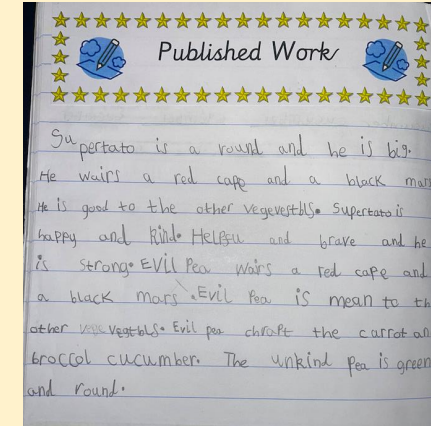 Published Work
Supertato is a round and he is big.
He wairs a red cape and a black mars
He is good to the other vegevestbls. Supertato is
happy and kind. Helpsu and brave and he
is strong. EVIL Pea wairs a red cape and
a black mars. Evil Pea is mean to th
other vegtbls. Evil pea chrapt the carrot an
broccol cucumber. The unkind Pea is green
and round.